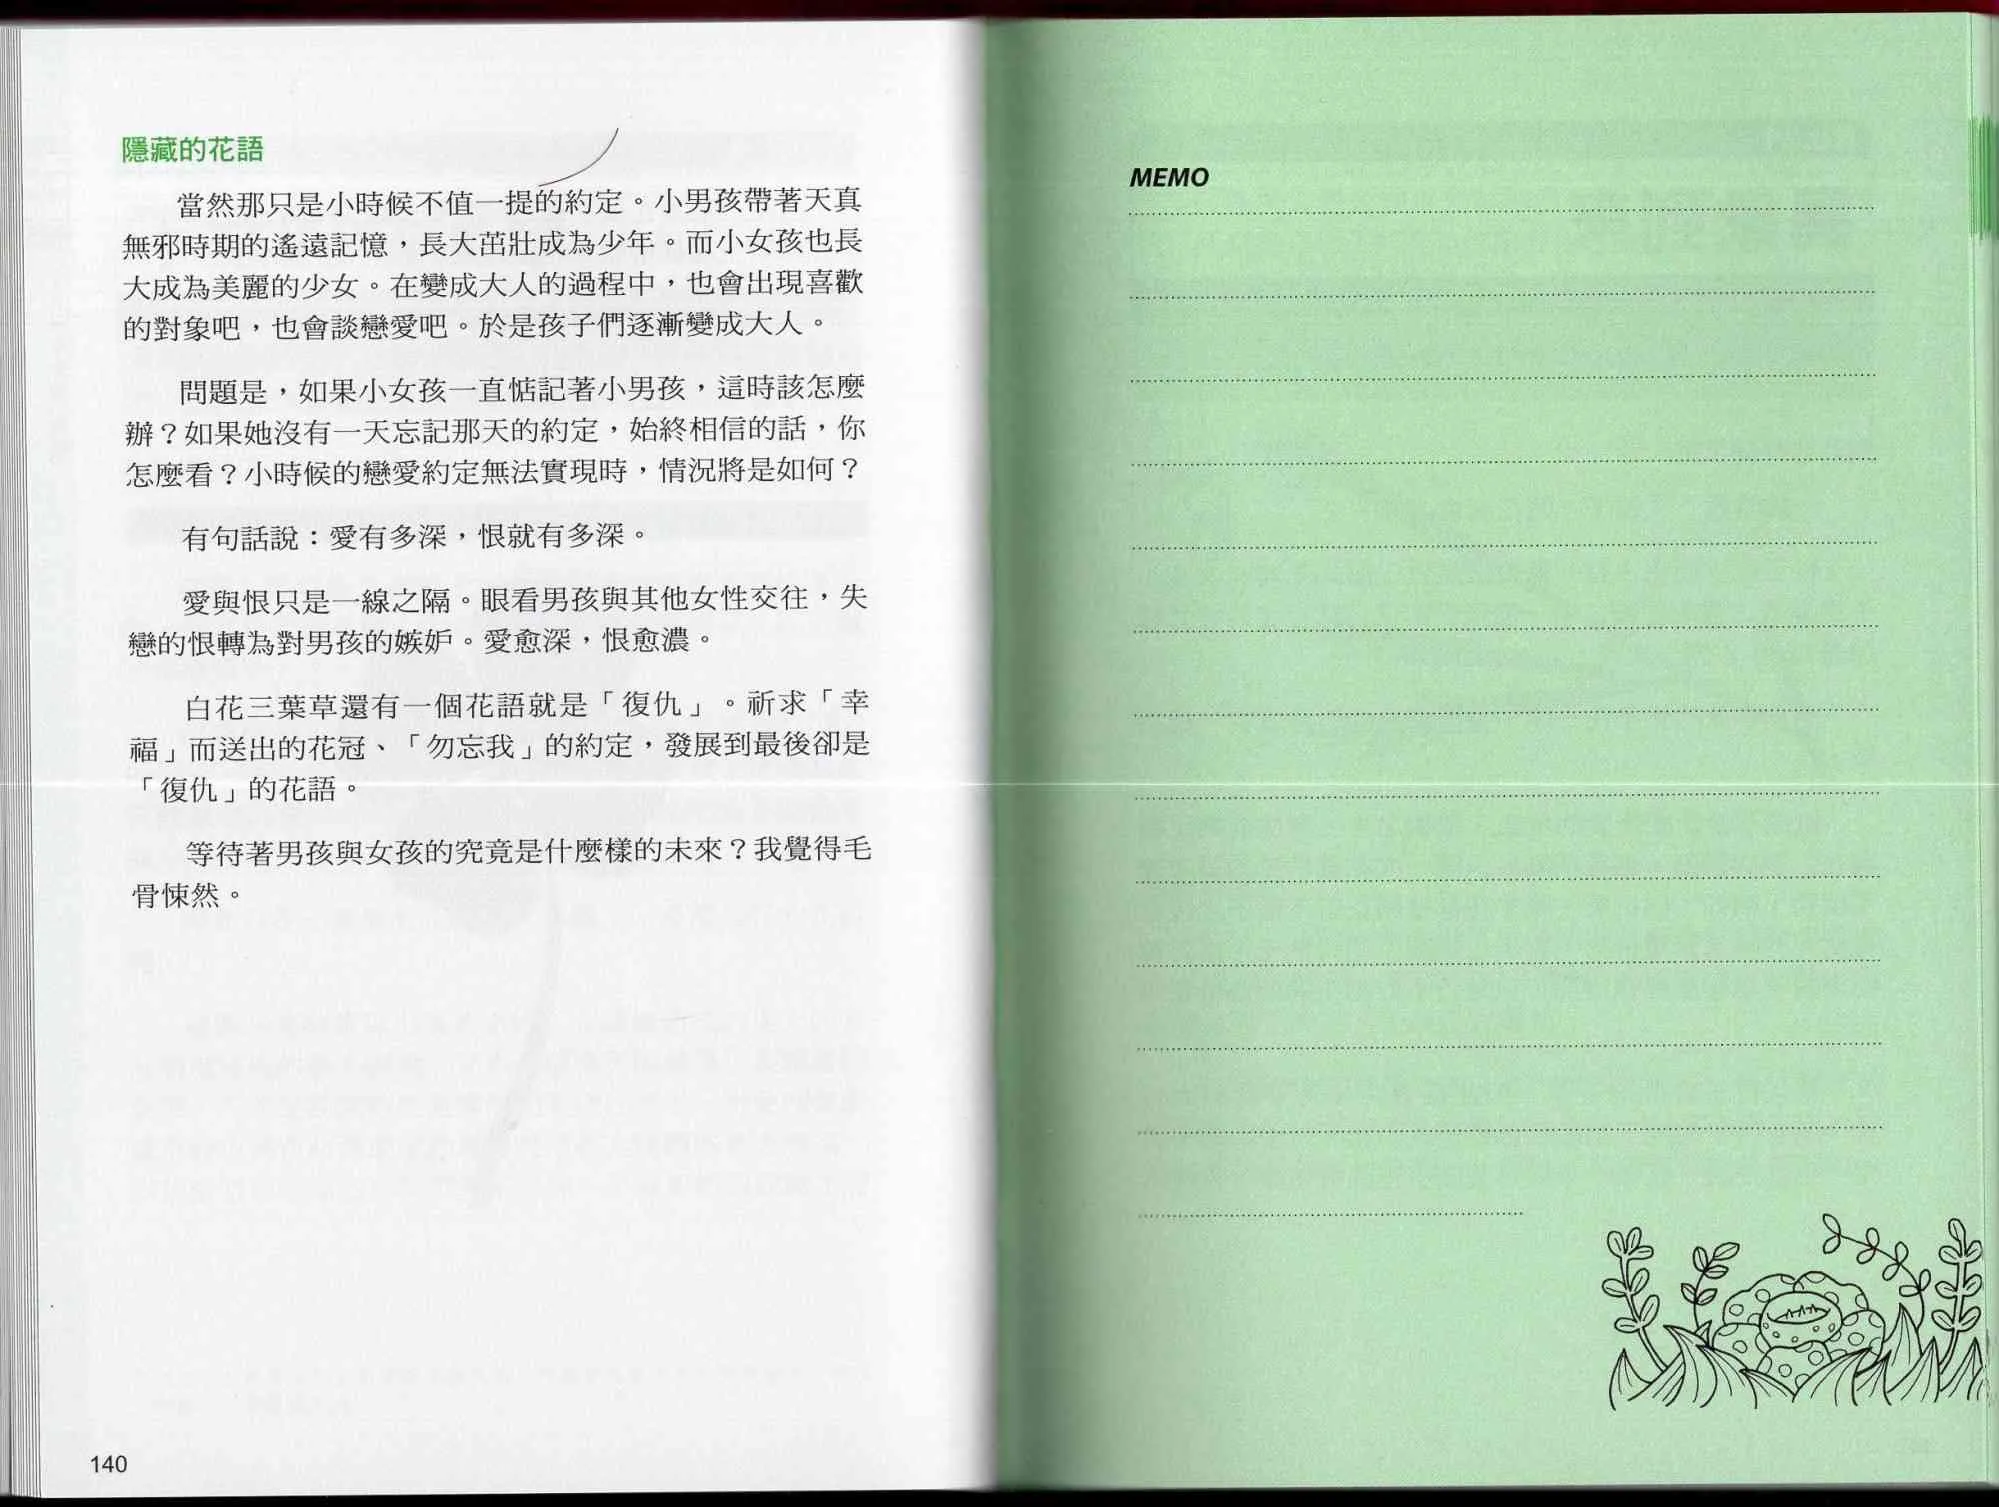 隱藏的花語
當然那只是小時候不值一提的約定。小男孩帶著天真
無邪時期的遙遠記憶，長大茁壯成為少年。而小女孩也長
大成為美麗的少女。在變成大人的過程中，也會出現喜歡
的對象吧，也會談戀愛吧。於是孩子們逐漸變成大人。
問題是，如果小女孩一直惦記著小男孩，這時該怎麼
辦？如果她沒有一天忘記那天的約定，始終相信的話，你
怎麼看？小時候的戀愛約定無法實現時，情況將是如何？
有句話說：愛有多深，恨就有多深。
愛與恨只是一線之隔。眼看男孩與其他女性交往，失
戀的恨轉為對男孩的嫉妒。愛愈深，恨愈濃。
白花三葉草還有一個花語就是「復仇」。祈求「幸
福」而送出的花冠、「勿忘我」的約定，發展到最後卻是
「復仇」的花語。
等待著男孩與女孩的究竟是什麼樣的未來？我覺得毛
骨悚然。
140
MEMO